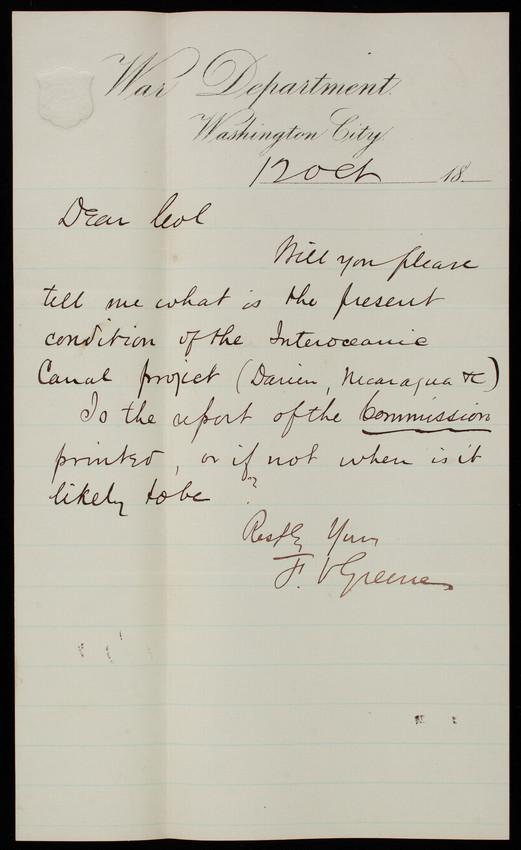 War Department.
Washington City.
12 Oct 18
Dear Col
Will you please
tell me what is the present
condition of the Interoceanic
Canal project (Darien, Nicaragua &c)
Is the report of the Commission
printed, or if not when is it
likely to be ?
Resfly Yours
F. V Greene